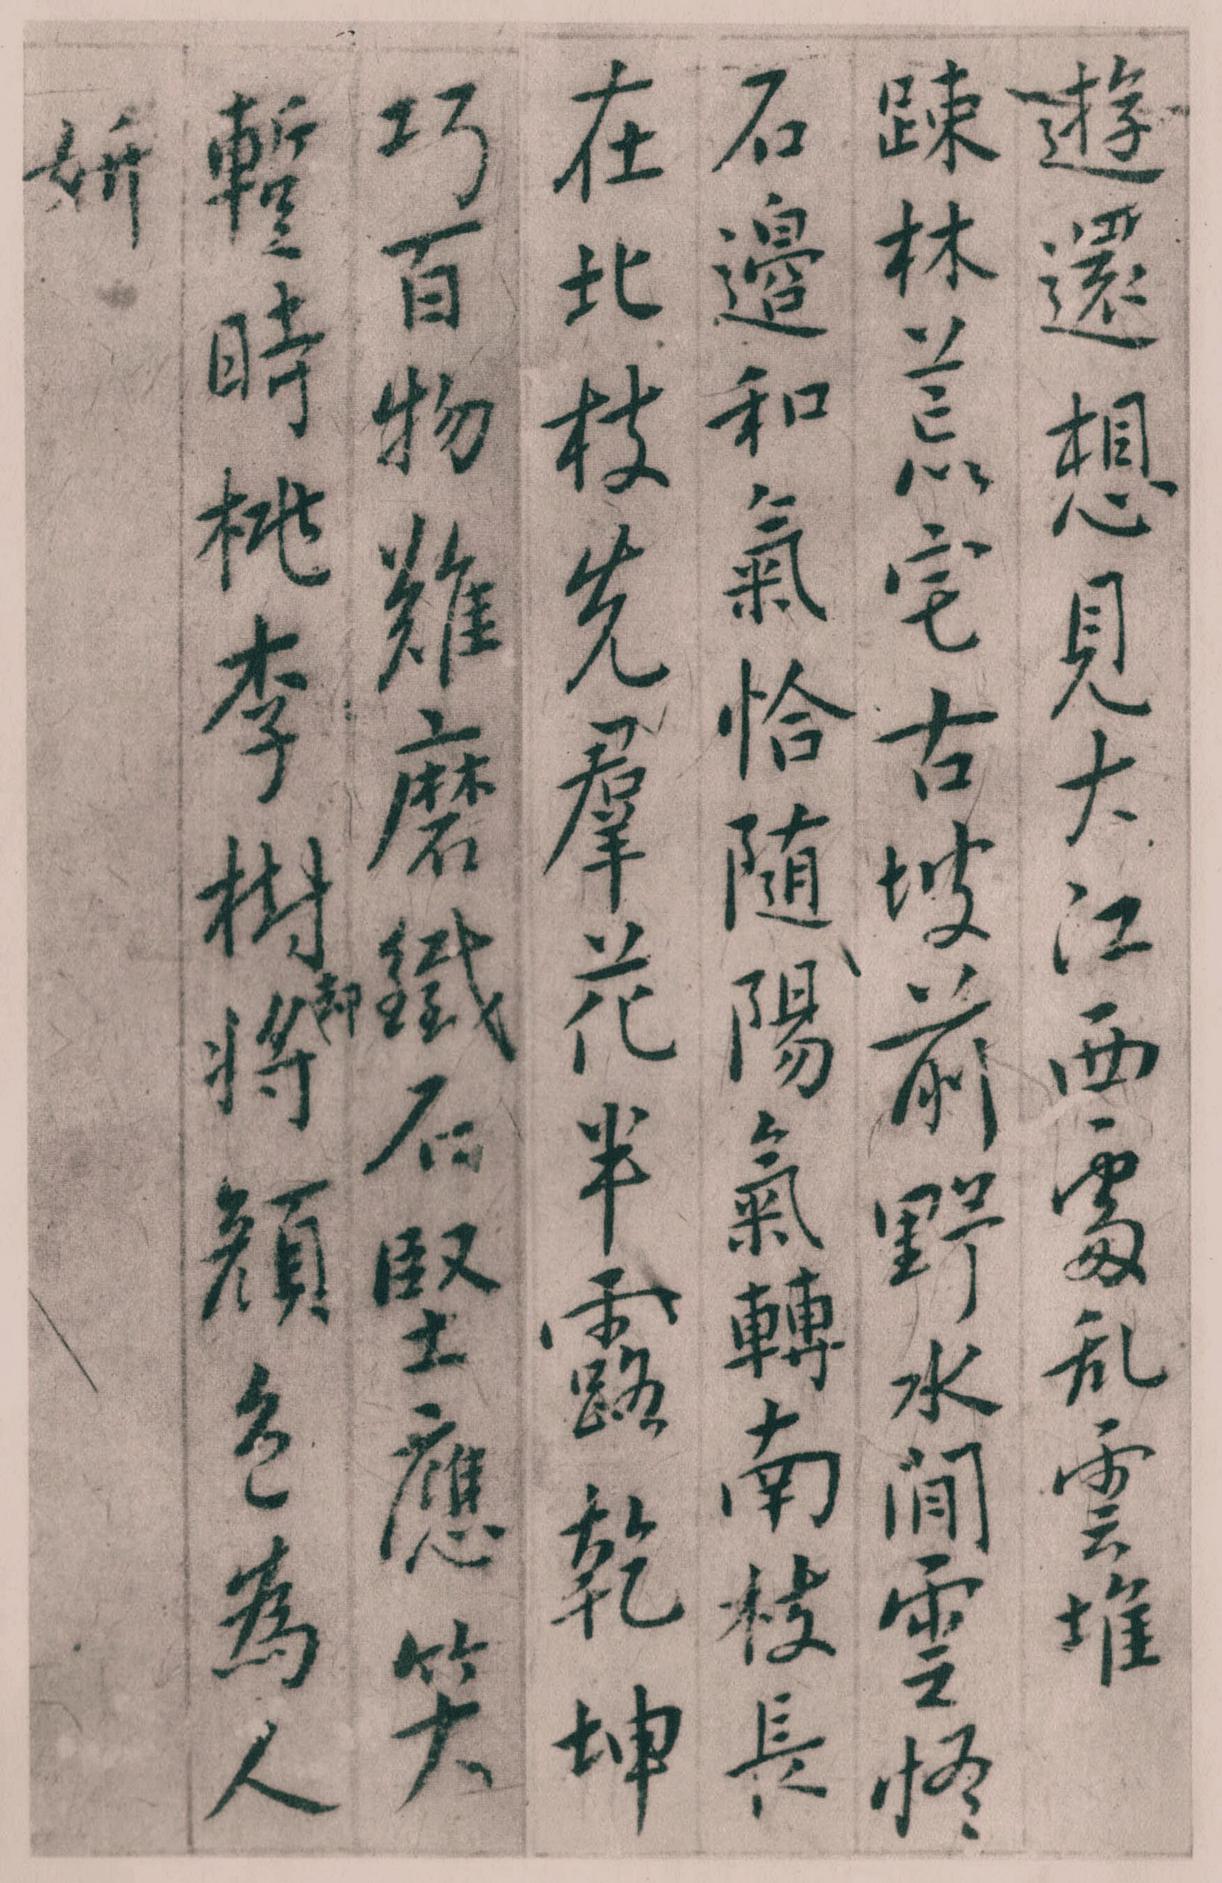 遊還想見大江西處乱雲堆
踈林荒宅古坡前野水澗雲恠
石邊和氣恰随陽氣轉南枝長
在北枝先羣花半露乾坤
巧百物難磨鐵石堅應笑
暫時桃李樹却將顏色為人
妍